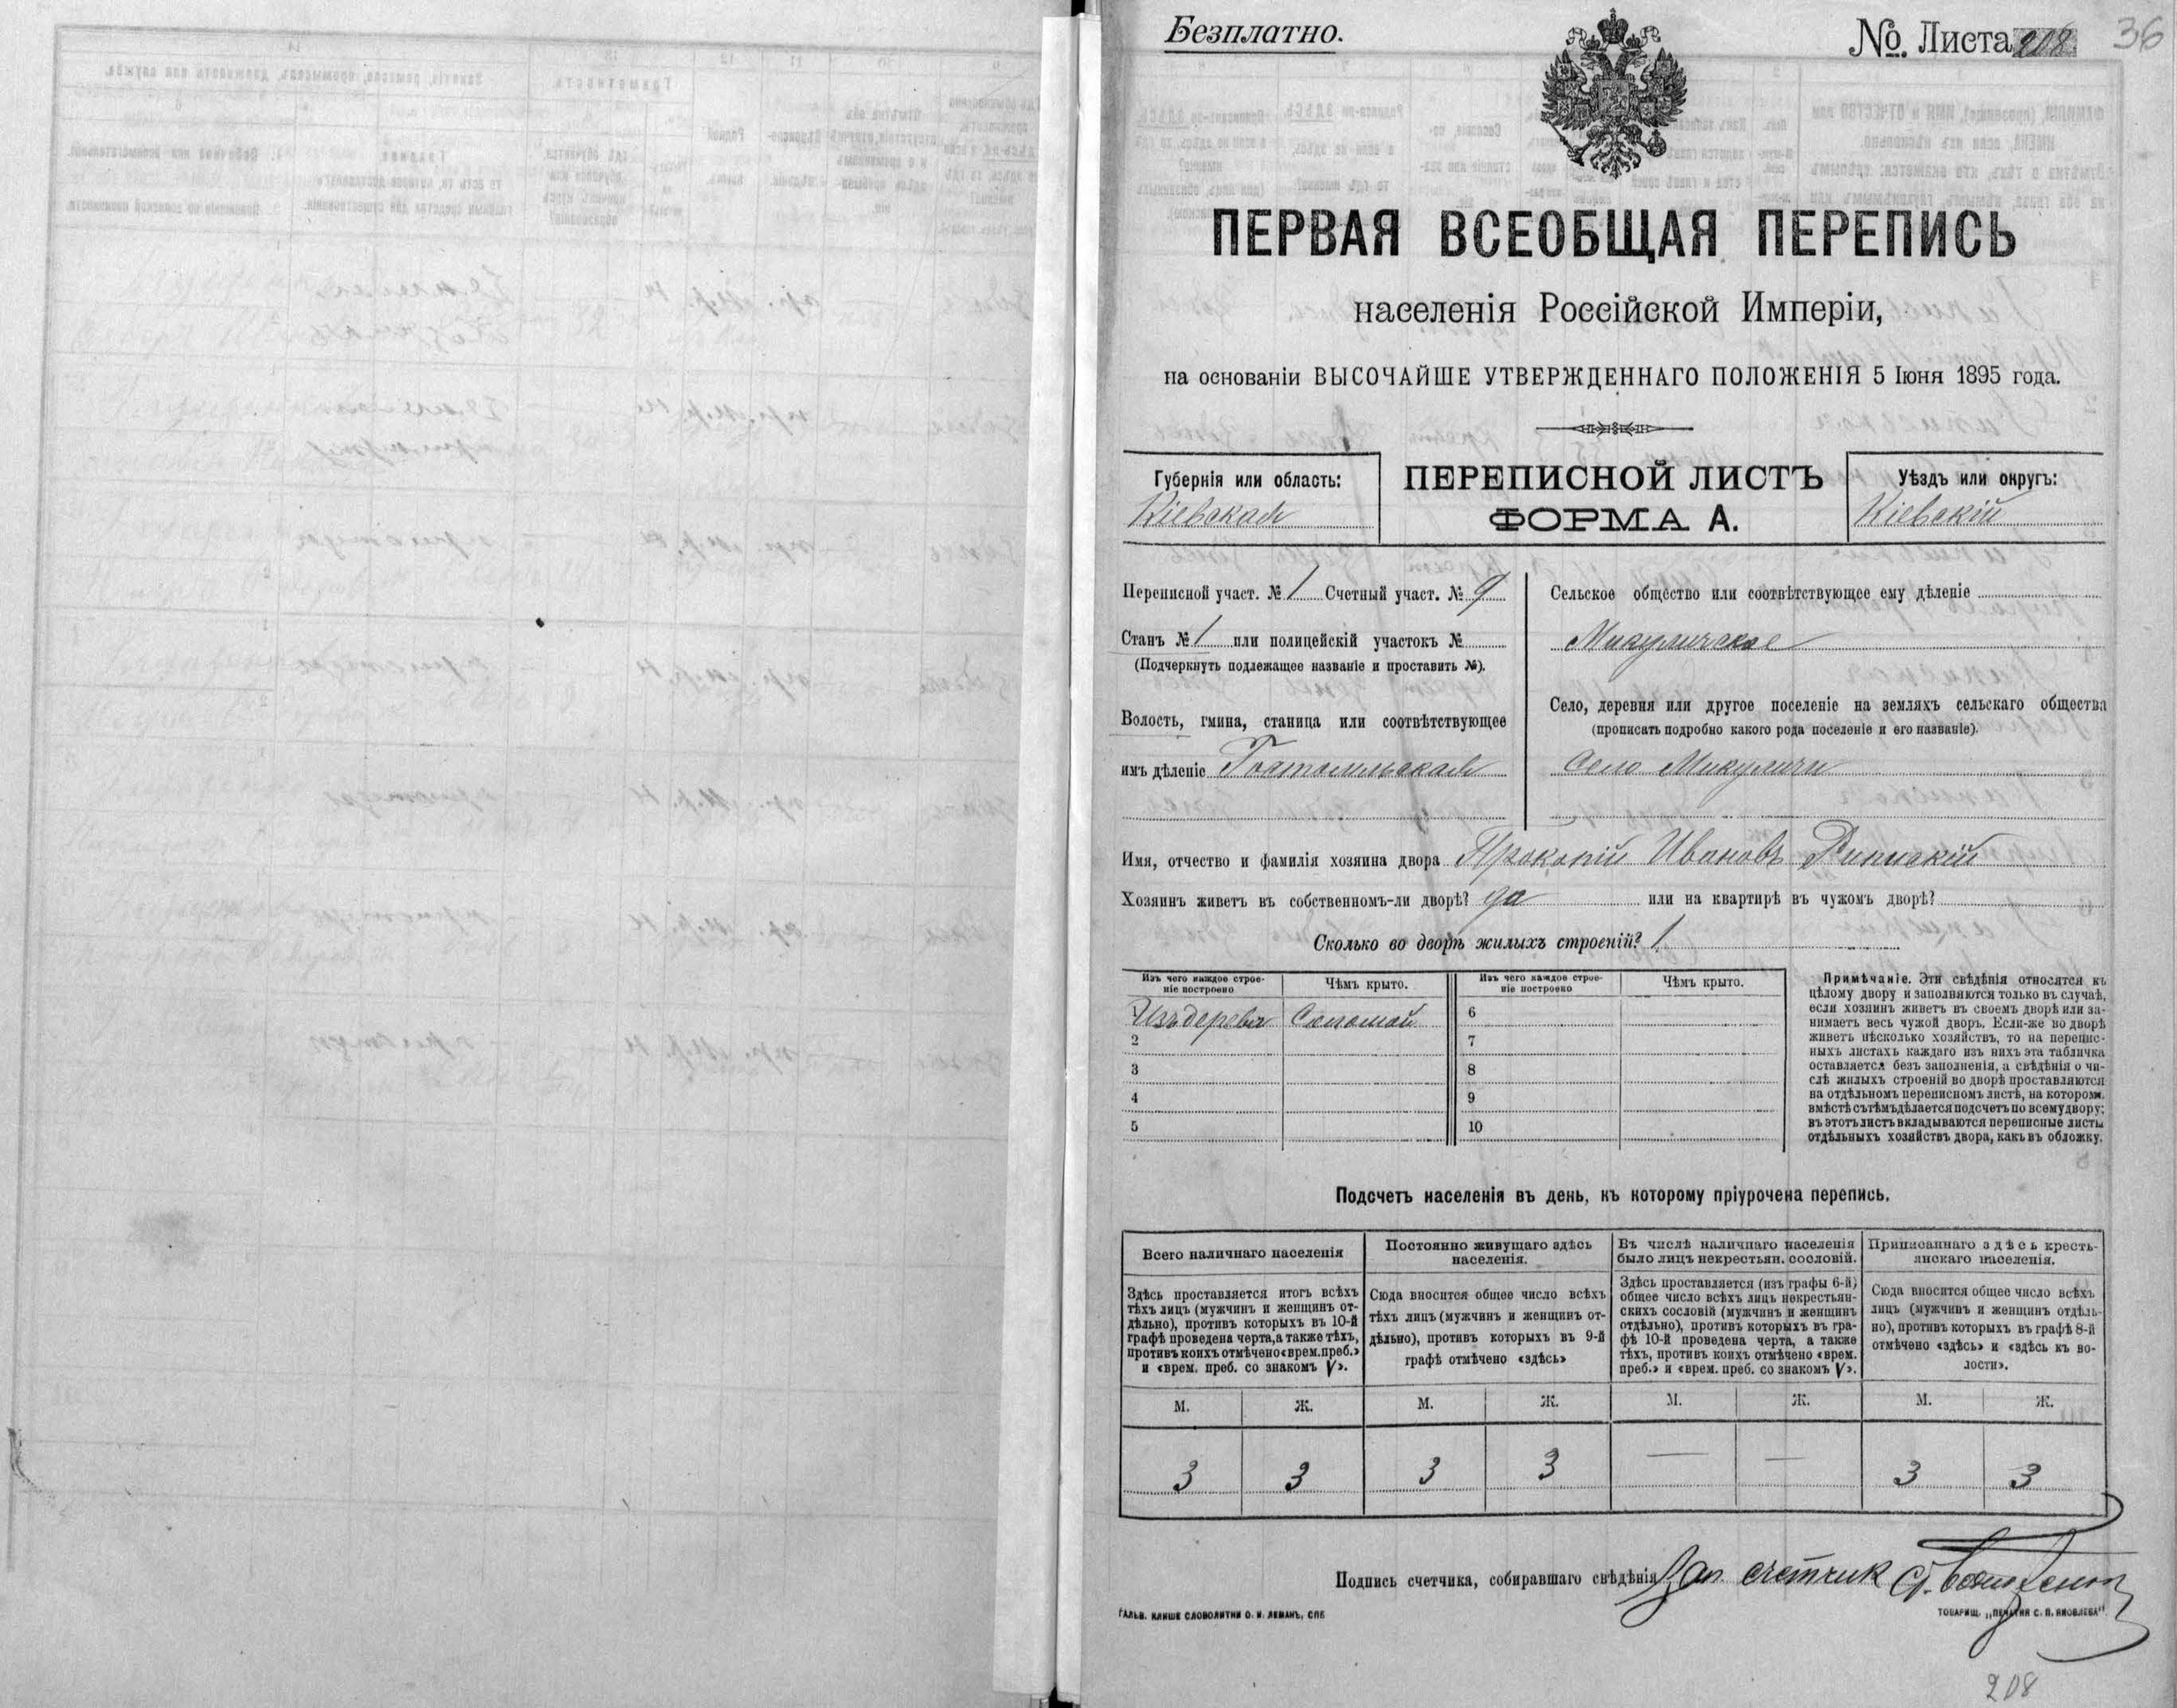 Безплатно.
№. Листа 208. 36
ПЕРВАЯ ВСЕОБЩАЯ ПЕРЕПИСЬ
населенія Россійской Имперіи,
на основаніи ВЫСОЧАЙШЕ УТВЕРЖДЕННАГО ПОЛОЖЕНІЯ 5 Іюня 1895 года.
Губернія или область:
Кіевская
ПЕРЕПИСНОЙ ЛИСТЪ
ФОРМА А.
Уѣздъ или округъ:
Кіевскій
Переписной участ. № 1 Счетный участ. № 9
Станъ № 1 или полицейскій участокъ №
(Подчеркнуть подлежащее названіе и проставить №).
Волость, гмина, станица или соотвѣтствующее
имъ дѣленіе Гостомльская
Сельское общество или соотвѣтствующее ему дѣленіе
Микуличское
Село, деревня или другое поселеніе на земляхъ сельскаго общества
(прописать подробно какого рода поселеніе и его названіе).
Село Микуличи
Имя, отчество и фамилія хозяина двора Прокопій Ивановъ Рипискій
Хозяинъ живетъ въ собственномъ-ли дворѣ? да или на квартирѣ въ чужомъ дворѣ?
Сколько во дворѣ жилыхъ строеній? 1
Изъ чего каждое строе-
ніе построено
Чѣмъ крыто.
Изъ чего каждое строе-
ніе построено
Чѣмъ крыто.
Изъ дерева Соломой 6
2 7
3 8
4 9
5 10
Примѣчаніе. Эти свѣдѣнія относятся къ
цѣлому двору и заполняются только въ случаѣ,
если хозяинъ живетъ въ своемъ дворѣ или за-
нимаетъ весь чужой дворъ. Если-же во дворѣ
живетъ нѣсколько хозяйствъ, то на перепис-
ныхъ листахъ каждаго изъ нихъ эта табличка
оставляется безъ заполненія, а свѣдѣнія о чи-
слѣ жилыхъ строеній во дворѣ проставляются
на отдѣльномъ переписномъ листѣ, на которомъ
вмѣстѣ съ тѣмъ дѣлается подсчетъ по всему двору;
въ этотъ листъ вкладываются переписные листы
отдѣльныхъ хозяйствъ двора, какъ въ обложку.
Подсчетъ населенія въ день, къ которому пріурочена перепись.
Всего наличнаго населенія
Здѣсь проставляется итогъ всѣхъ
тѣхъ лицъ (мужчинъ и женщинъ от-
дѣльно), противъ которыхъ въ 10-й
графѣ проведена черта, а также тѣхъ,
противъ коихъ отмѣчено «врем. преб.»
и «врем. преб. со знакомъ V».
Постоянно живущаго здѣсь
населенія.
Сюда вносится общее число всѣхъ
тѣхъ лицъ (мужчинъ и женщинъ от-
дѣльно), противъ которыхъ въ 9-й
графѣ отмѣчено «здѣсь»
Въ числѣ наличнаго населенія
было лицъ некрестьян. сословій.
Здѣсь проставляется (изъ графы 6-й)
общее число всѣхъ лицъ некрестьян-
скихъ сословій (мужчинъ и женщинъ
отдѣльно), противъ которыхъ въ гра-
фѣ 10-й проведена черта, а также
тѣхъ, противъ коихъ отмѣчено «врем.
преб.» и «врем. преб. со знакомъ V».
Приписаннаго здѣсь кресть-
янскаго населенія.
Сюда вносится общее число всѣхъ
лицъ (мужчинъ и женщинъ отдѣль-
но), противъ которыхъ въ графѣ 8-й
отмѣчено «здѣсь» и «здѣсь къ во-
лости».
М. Ж. М. Ж. М. Ж. М. Ж.
3 3 3 3 — — 3 3
Подпись счетчика, собиравшаго свѣдѣнія Зап. счетчик
ГАЛЬВ. КЛИШЕ СЛОВОЛИТНИ О. И. ЛЕМАНЪ, СПБ
ТОВАРИЩ. „ПЕЧАТНЯ С. П. ЯКОВЛЕВА“.
208